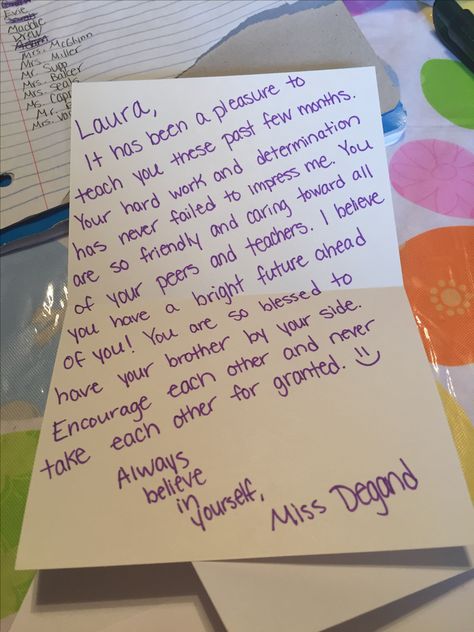 Evie
Maddie
Drew
Mrs. McGlynn
Mrs. Miller
Mr. Supp
Mrs. Baker
Mrs. Seals
Ms. Cap
Mr.
Mrs. Van
Laura,
It has been a pleasure to
teach you these past few months.
Your hard work and determination
has never failed to impress me. You
are so friendly and caring toward all
of your peers and teachers. I believe
you have a bright future ahead
of you! You are so blessed to
have your brother by your side.
Encourage each other and never
take each other for granted. :)
Always
believe
in
yourself,
Miss Degand